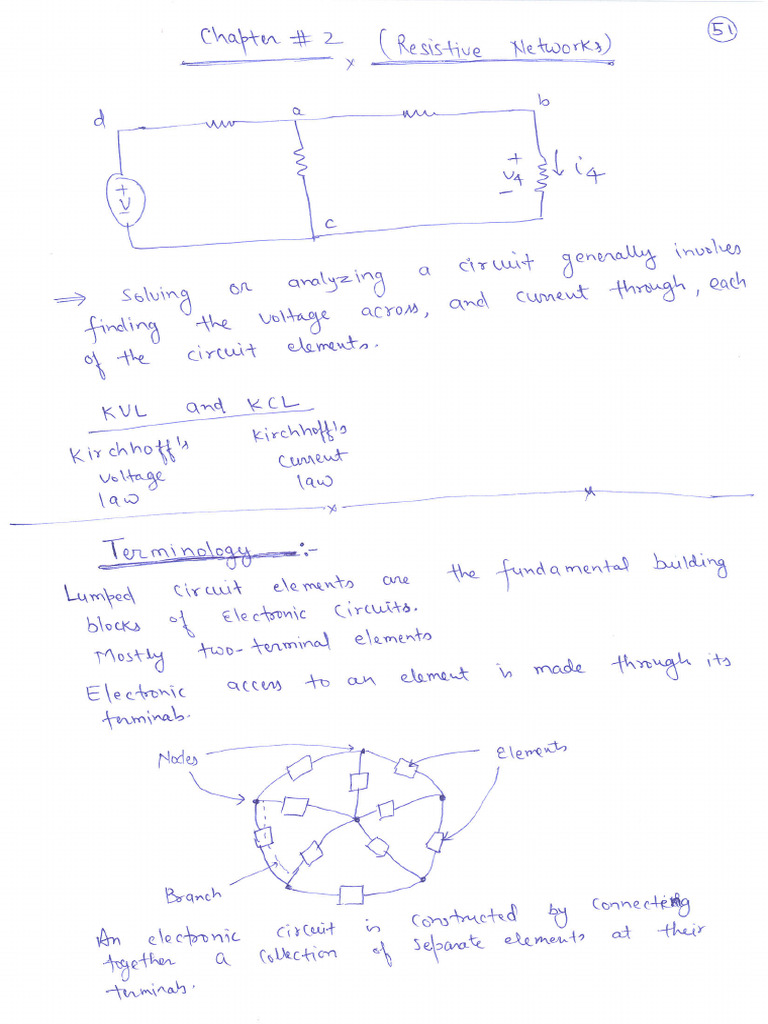 51
Chapter # 2 (Resistive Networks)
x
d
a
b
+
V
-
+
V4
-
i4
c
⇒ Solving or analyzing a circuit generally involves
finding the voltage across, and current through, each
of the circuit elements.
KVL and KCL
Kirchhoff's
voltage
law
Kirchhoff's
current
law
Terminology :-
Lumped circuit elements are the fundamental building
blocks of Electronic Circuits.
Mostly two-terminal elements
Electronic access to an element is made through its
terminals.
Nodes
Elements
Branch
An electronic circuit is constructed by connecting
together a collection of separate elements at their
terminals.